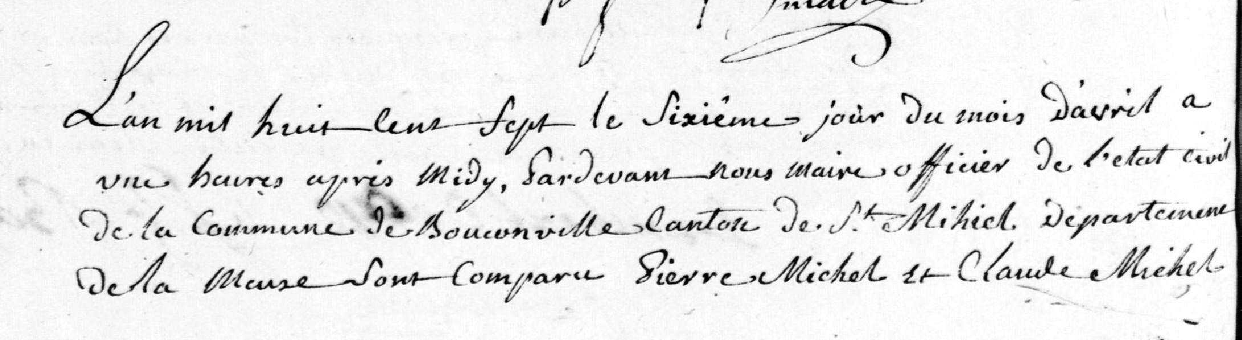 L'an mil huit Cent Sept le Sixième jour du mois D'avril a
une heures après Midy, Pardevant nous maire officier de l'etat civil
de la Commune de Bouconville Canton de St. Mihiel Departement
de la Meuse Sont Comparu Pierre Michel et Claude Michel